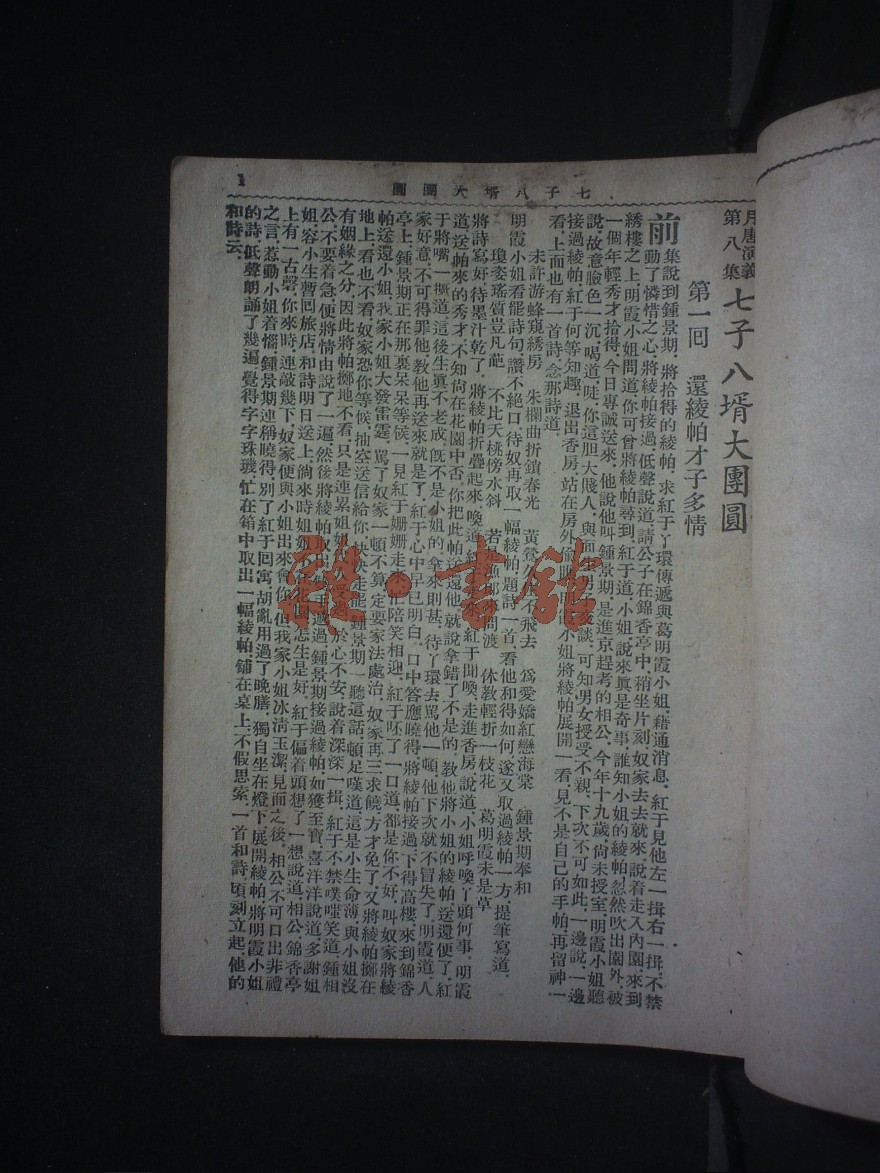 月唐演義
第八集
七子八壻大團圓
第一回　還綾帕才子多情
前集說到鍾景期，將拾得的綾帕，求紅于丫環傳遞與葛明霞小姐，藉通消息，紅于見他左一揖右一揖，不禁
動了憐惜之心，將綾帕接過，低聲說道，請公子在錦香亭中，稍坐片刻，奴家去去就來，說着走入內園，來到
綉樓之上，明霞小姐問道，你可曾將綾帕尋到，紅于道，小姐說來眞是奇事，誰知小姐的綾帕，忽然吹出園外，被
一個年輕秀才拾得，今日專誠送來，他說他叫鍾景期，是進京趕考的相公，今年十九歲，尙未授室，明霞小姐聽
說，故意臉色一沉，喝道，唗，你這胆大賤人，與面生男子交談，可知男女授受不親，下次不可如此，一邊說，一邊
接過綾帕，紅于何等知趣，退出香房，站在房外偷瞧，明霞小姐將綾帕展開一看，見不是自己的手帕，再留神一
看，上面也有一首詩，念那詩道，
未許游蜂窺綉房　朱欄曲折鎖春光　黃鶯久不飛去　爲愛嬌紅戀海棠　鍾景期奉和
明霞小姐看罷詩句，讚不絕口，待奴再取一幅綾帕，題詩一首，看他和得如何，遂又取過綾帕一方，提筆寫道，
瓊姿瑤質豈凡葩　不比夭桃傍水斜　若　漁郎問渡　休教輕折一枝花　葛明霞未是草
將詩寫好，待墨汁乾了，將綾帕折疊起來，喚道，紅于　來，紅于聞喚，走進香房說道，小姐呼喚丫頭何事，明霞
道，送帕來的秀才，不知尙在花園中否，你把此帕送還他，就說拿錯了，不是的，教他將小姐的綾帕，送還便了，紅
于將嘴一撅道，這後生眞不老成，旣不是小姐的，拿來則甚，待丫環去罵他一頓，他下次就不冒失了，明霞道，人
家好意，不可得罪他，教他再送來就是了，紅于心中早已明白，口中答應曉得，將綾帕接過，下得高樓，來到錦香
亭上，鍾景期正在那裏呆呆等候，一見紅于姍姍走來，忙陪笑相迎，紅于呸了一口道，都是你不好，叫奴家將綾
帕送還小姐，我家小姐大發雷霆，罵了奴家一頓不算，定要家法處治，奴家再三求饒，方才免了，又將綾帕擲在
地上，看也不看，奴家恐你等候，抽空送信給你，快快走罷，鍾景期一聽這話，頓足嘆道，這是小生命薄，與小姐沒
有姻緣之分，因此將帕擲地不看，只是連累姐姐　受過，於心不安，說着深深一揖，紅于不禁噗嗤笑道，鍾相
公，不要着急，便將情由說了一遍，然後將綾帕取出，雙手遞過，鍾景期接過綾帕，如獲至寶，喜洋洋說道，多謝姐
姐，容小生暫囘旅店，和詩明日送上，倘來時姐姐不在花園，怎生是好，紅于偏着頭想了一想說道，相公，錦香亭
上有一古磬，你來時連敲幾下，奴家便與小姐出來會你，但我家小姐冰淸玉潔，見面之後，相公不可口出非禮
之言，惹動小姐着惱，鍾景期連稱曉得，別了紅于囘寓，胡亂用過了晚膳，獨自坐在燈下，展開綾帕，將明霞小姐
的詩，低聲朗誦了幾遍，覺得字字珠璣，忙在箱中取出一幅綾帕，鋪在桌上，不假思索，一首和詩，頃刻立起，他的
和詩云，
七子八壻大團圓
1